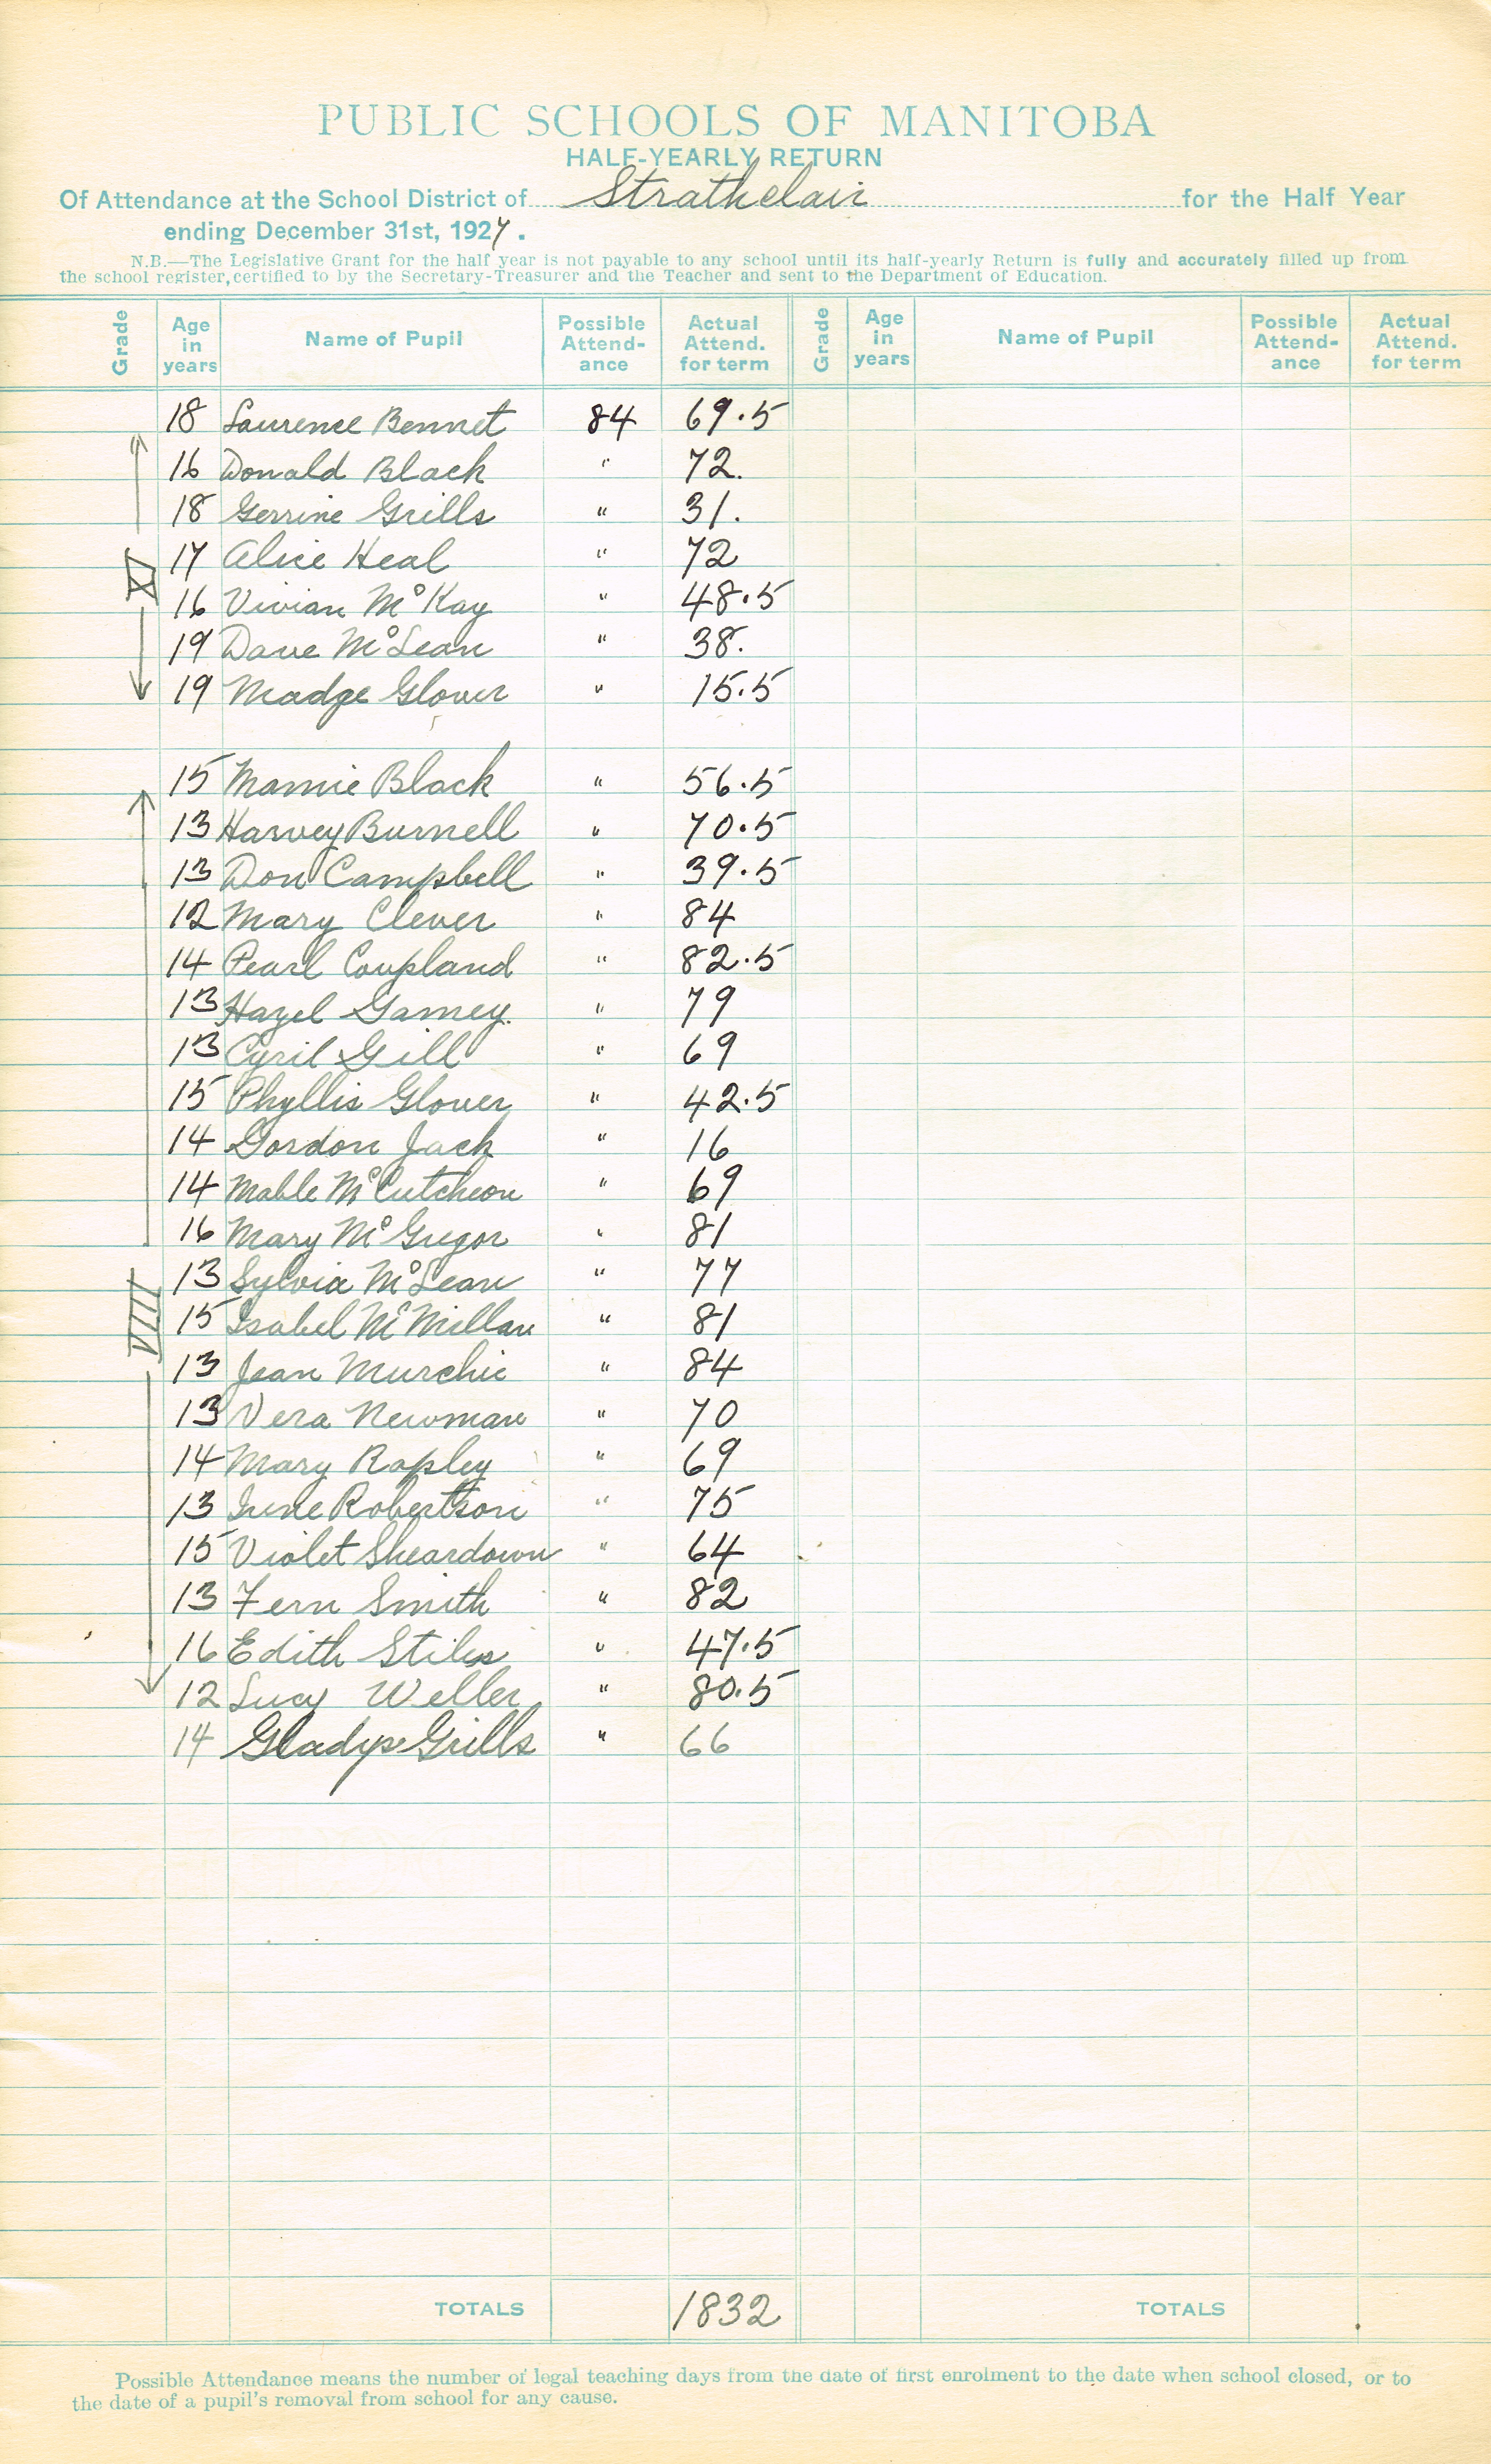 PUBLIC SCHOOLS OF MANITOBA
HALF-YEARLY RETURN
Of Attendance at the School District of Strathclair for the Half Year
ending December 31st, 1927.
N.B.—The Legislative Grant for the half year is not payable to any school until its half-yearly Return is fully and accurately filled up from
the school register, certified to by the Secretary-Treasurer and the Teacher and sent to the Department of Education.
Grade Age in years Name of Pupil Possible Attend-ance Actual Attend. for term Grade Age in years Name of Pupil Possible Attend-ance Actual Attend. for term
18 Laurence Bennet 84 69.5
16 Donald Black " 72.
18 Gerrine Grills " 31.
XI 17 Alice Heal " 72
16 Vivian McKay " 48.5
19 Dave McLean " 38.
19 Madge Glover " 15.5
15 Mamie Black " 56.5
13 Harvey Burnell " 70.5
13 Don Campbell " 39.5
12 Mary Clever " 84
14 Pearl Coupland " 82.5
13 Hazel Gamey. " 79
13 Cyril Gill " 69
15 Phyllis Glover " 42.5
14 Gordon Jack " 16
14 Mable McCutcheon " 69
16 Mary McGregor " 81
13 Sylvia McLean " 77
VIII 15 Isabel McMillan " 81
13 Jean Murchie " 84
13 Vera Newman " 70
14 Mary Rapley " 69
13 Irene Robertson " 75
15 Violet Sheardown " 64
13 Fern Smith " 82
16 Edith Stiles " 47.5
12 Lucy Weller " 80.5
14 Gladys Grills " 66
TOTALS 1832 TOTALS
Possible Attendance means the number of legal teaching days from the date of first enrolment to the date when school closed, or to
the date of a pupil's removal from school for any cause.